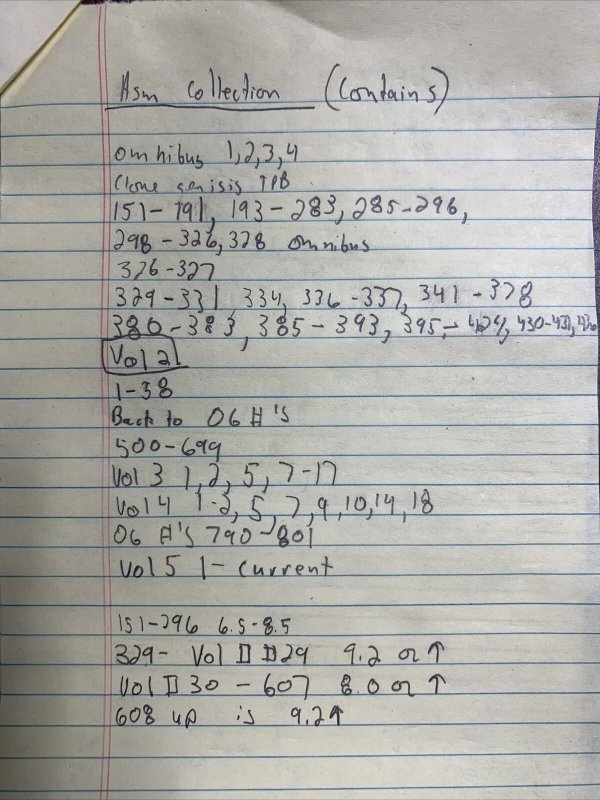 Asm Collection (Contains)
Omnibus 1,2,3,4
Clone genisis TPB
151-191, 193-283, 285-296,
298-326, 328 omnibus
326-327
329-331, 334, 336-337, 341-378
380-383, 385-393, 395-
Vol 2
1-38
Back to OG #'s
500-699
Vol 3 1, 2, 5, 7-17
Vol 4 1-2, 5, 7, 9, 10, 14, 18
OG #'s 790-801
Vol 5 1- Current
151-296 6.5-8.5
329- Vol II II 29 9.2 or ↑
Vol II 30 - 607 8.0 or ↑
608 up is 9.2↑